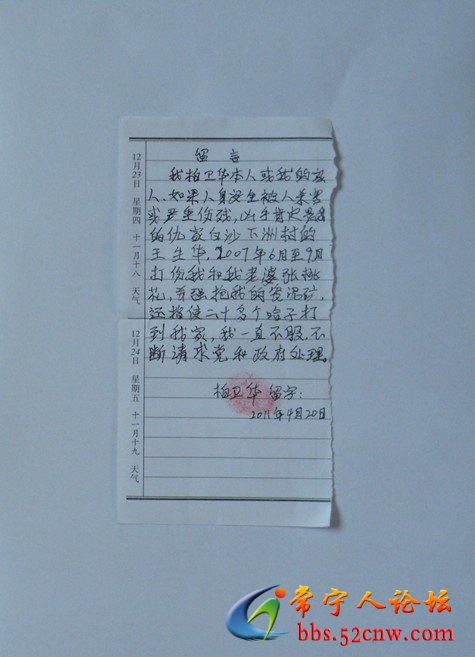 留言
我柏卫华本人或我的家
人、如果人身发生被人杀害
或严重伤残，凶手肯定是我
的仇家白沙下洲村的
王生华，2007年6月至9月
打伤我和我老婆张桃
花，并强抢我的瓷泥矿，
还指使二十多个哈子打
到我家，我一直不服，不
断请求党和政府处理。
柏卫华 留字：
2011年4月20日
12月23日 星期四 十一月十八 天气
12月24日 星期五 十一月十九 天气
常宁人论坛
bbs.52cnw.com